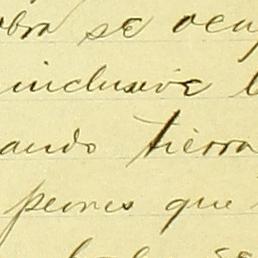 obra se ocup
inclusive l
ando tierra
peones que
se